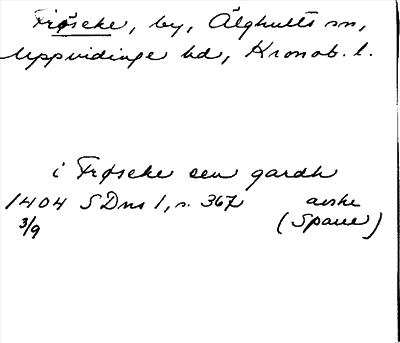 Frøseke, by, Älghults sn,
Uppvidinge hd, Kronob. l.
i Frøseke een gardh
1404 SDns 1, s. 367 avskr
3/9 (Spaue)